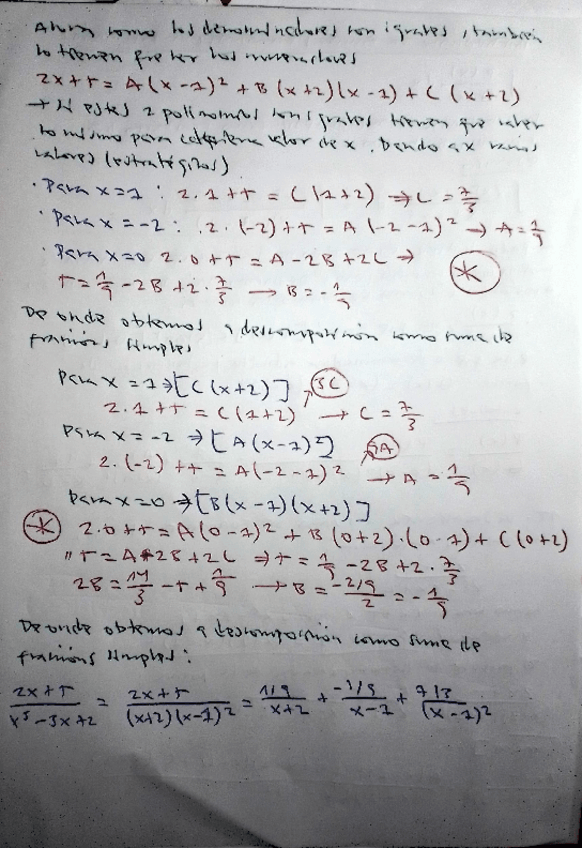 Ahora como los denominadores son iguales, también
lo tienen que ser los numeradores
2x+5 = A(x-1)² + B(x+2)(x-1) + C(x+2)
→ Si estes 2 polinomios son iguales tienen que valer
lo mismo para valor de x. Dando a x varios
valores (estratégicos)
· Para x=1 : 2·1+5 = C(1+2) → C = 7/3
· Para x=-2 : 2·(-2)+5 = A(-2-1)² → A = 1/9
· Para x=0 2·0+5 = A-2B+2C →
5 = 1/9 - 2B + 2·7/3 → B = -1/9
De onde obtemos a descomposición como suma de
fraccións simples
Para x=1 → [C(x+2)] 3C
2·1+5 = C(1+2) → C = 7/3
Para x=-2 → [A(x-1)²] 9A
2·(-2)+5 = A(-2-1)² → A = 1/9
Para x=0 → [B(x-1)(x+2)]
2·0+5 = A(0-1)² + B(0+2)·(0-1) + C(0+2)
5 = A-2B+2C → 5 = 1/9 - 2B + 2·7/3
2B = 14/3 - 5 + 1/9 → B = -2/9/2 = -1/9
De onde obtemos a descomposición como suma de
fraccións simples:
2x+5/x³-3x+2 = 2x+5/(x+2)(x-1)² = 1/9/x+2 + -1/9/x-1 + 7/3/(x-1)²